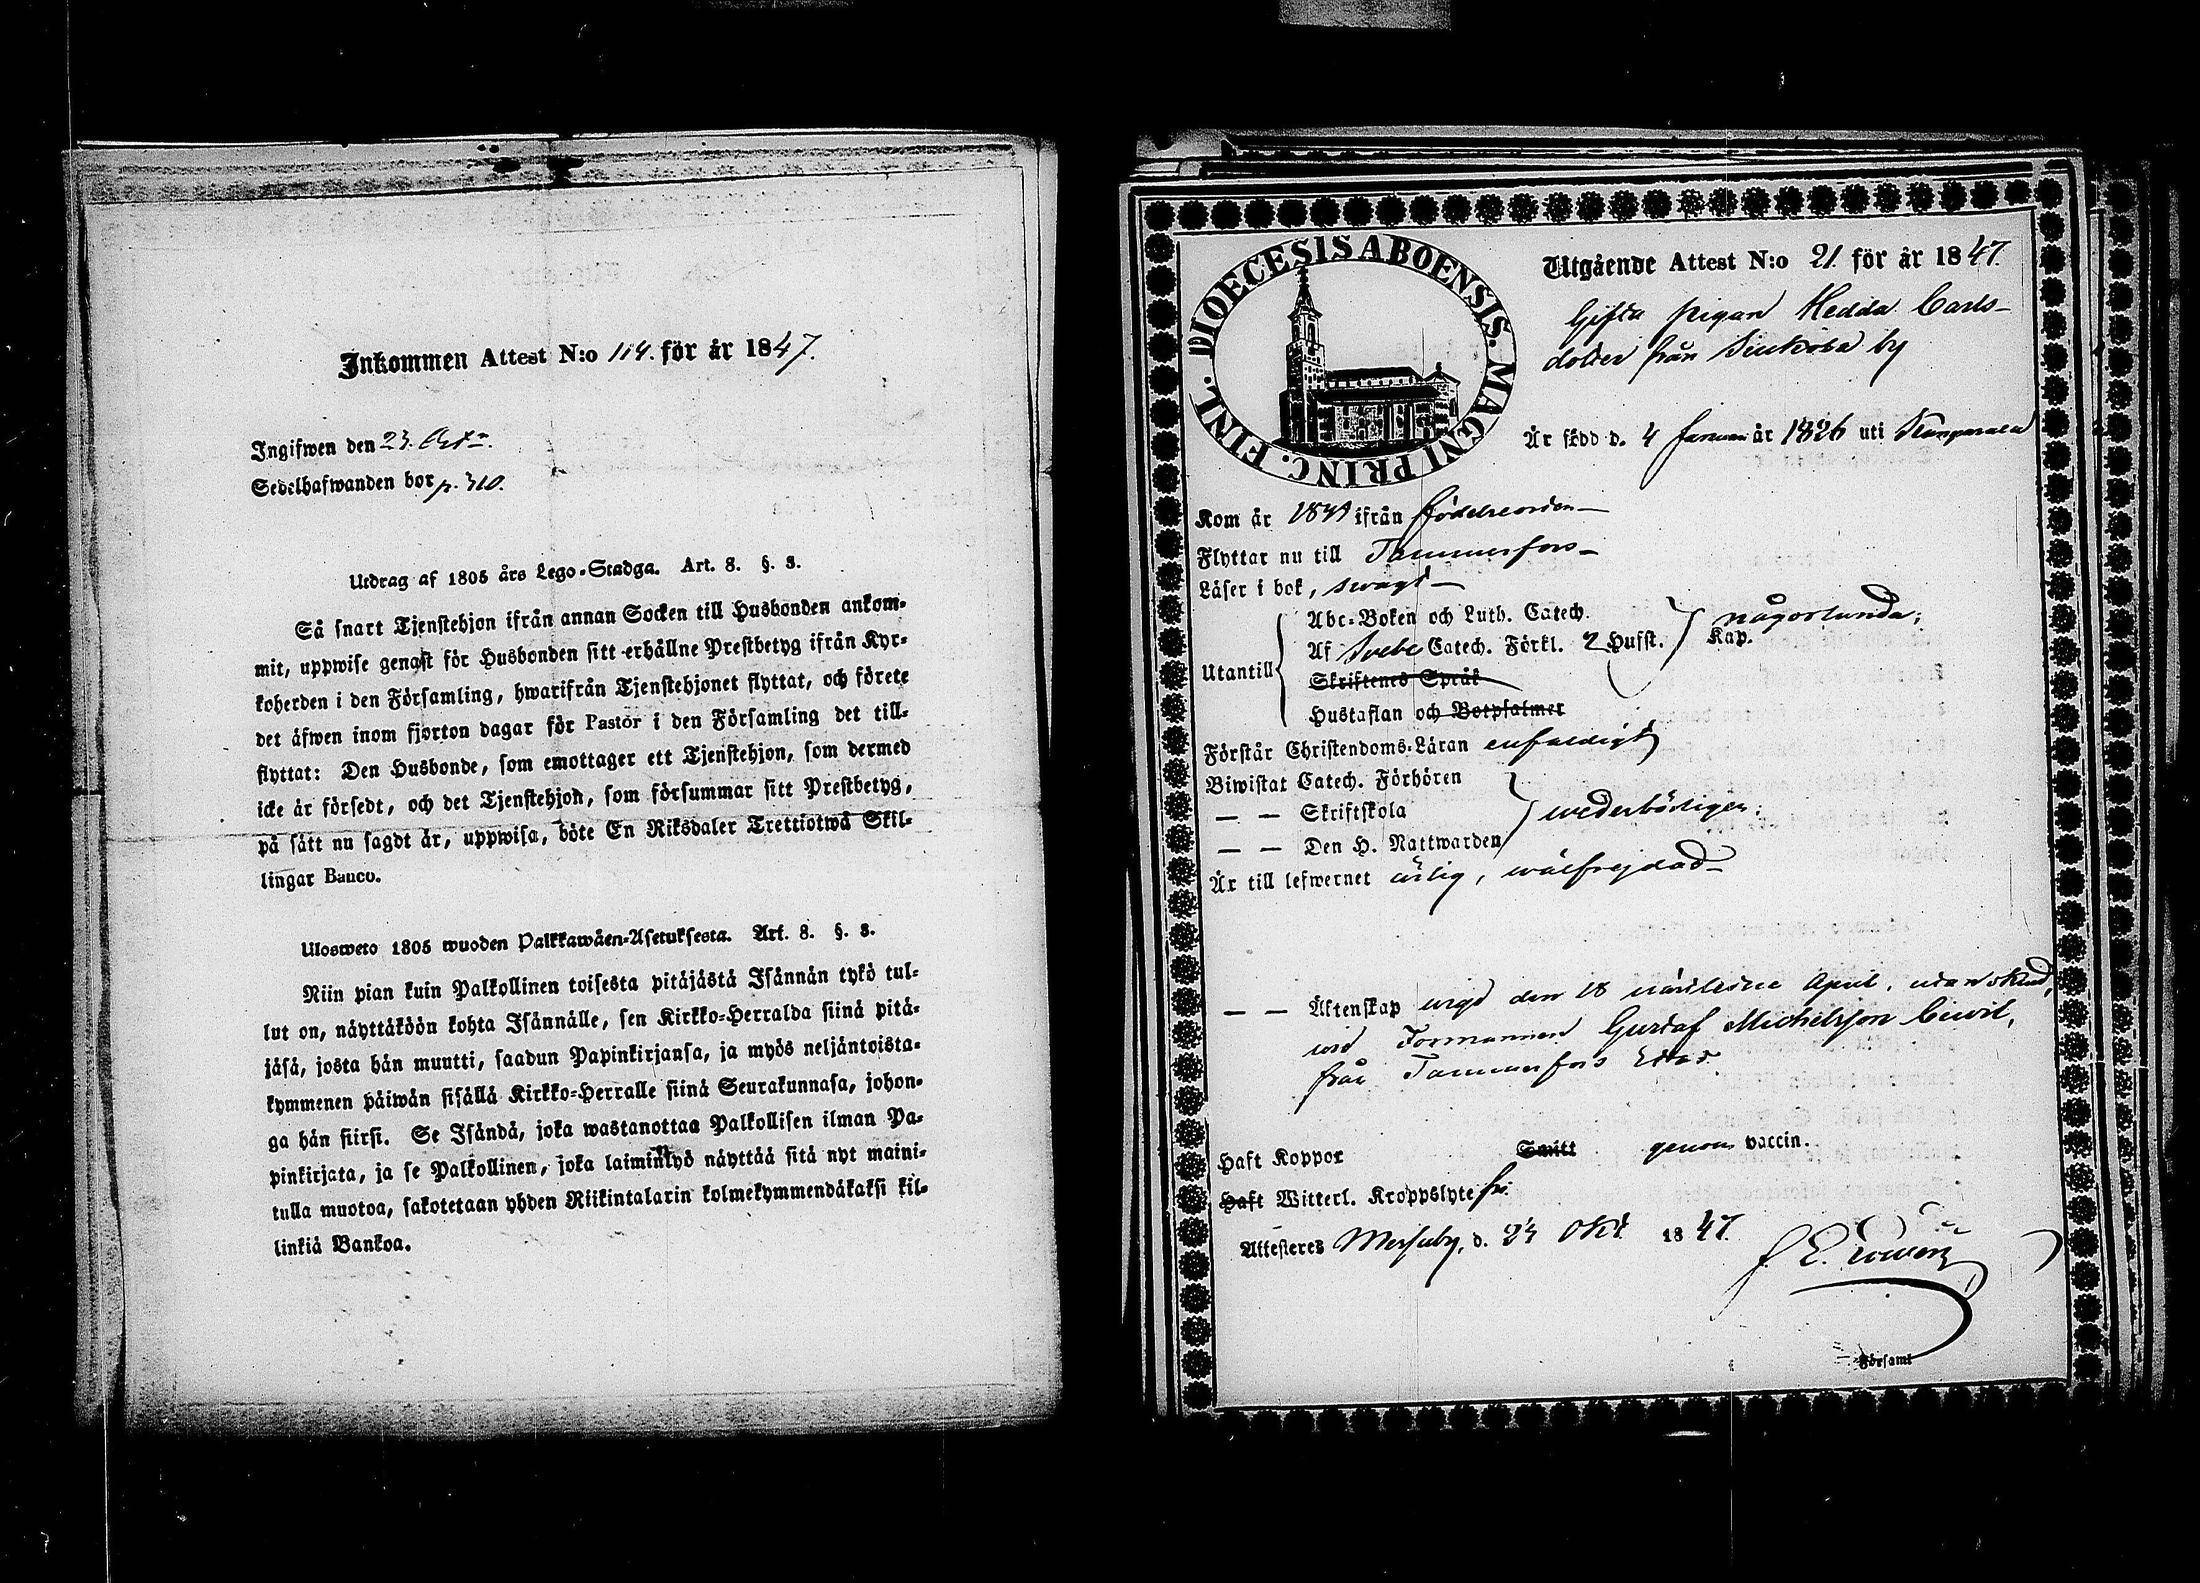 Inkommen Attest N:o 114. för år 1847.
Ingifwen den 23. Octr.
Sedelhafwanden bor p. 310.
Utdrag af 1805 års Lego-Stadga. Art. 8. §. 3.
Så snart Tjenstehjon ifrån annan Socken till Husbonden ankom-
mit, uppwise genast för Husbonden sitt erhållne Prestbetyg ifrån Kyr-
koherden i den Församling, hwarifrån Tjenstehjonet flyttat, och förete
det äfwen inom fjorton dagar för Pastor i den Församling det till-
flyttat: Den Husbonde, som emottager ett Tjenstehjon, som dermed
icke är försedt, och det Tjenstehjon, som försummar sitt Prestbetyg,
på sätt nu sagdt är, uppwisa, böte En Riksdaler Trettiotwå Skil-
lingar Banco.
Ulosweto 1805 wuoden Palkkawäen-Asetuksesta. Art. 8. §. 3.
Niin pian kuin Palkollinen toisesta pitäjästä Isännän tykö tul-
lut on, näyttäköön kohta Isännälle, sen Kirkko-Herralda siinä pitä-
jäsä, josta hän muutti, saadun Papinkirjansa, ja myös neljäntoista-
kymmenen päiwän sisällä Kirkko-Herralle siinä Seurakunnasa, johon-
ga hän siirsi. Se Isändä, joka wastanottaa Palkollisen ilman Pa-
pinkirjata, ja se Palkollinen, joka laiminlyö näyttää sitä nyt maini-
tulla muotoa, sakotetaan yhden Riikintalarin kolmekymmendäkaksi kil-
linkiä Bankoa.
DIOECESIS ABOENSIS. MAGNI PRINC. FINL.
Utgående Attest N:o 21. för år 1847.
Gifta pigan Hedda Carls-
dotter från by
Är född d. 4 Januari år 1826 uti Kangasala
Kom år ifrån födelseorten
Flyttar nu till Tammerfors
Läser i bok, swagt
Utantill
Abc-Boken och Luth. Catech.
Af Svebe Catech. Förkl. 2 Hufst. Kap. någorlunda;
Skriftenes Språk
Hustaflan och Botpsalmer
Förstår Christendoms-Läran enfaldigt
Biwistat Catech. Förhören
— — Skriftskola
— — Den H. Nattwarden
wederbörligen;
Är till lefwernet ärlig, wälfrejdad
— — Äktenskap wigd den 18 nästledne April, utan skud,
wid Formannen Gustaf Michelsson
från Tammerfors stad.
Haft Koppor Smitt genom vaccin.
Haft Witterl. Kroppslyte fri.
Attesteres Messuby, d. 23 Okt. 1847.
Församl